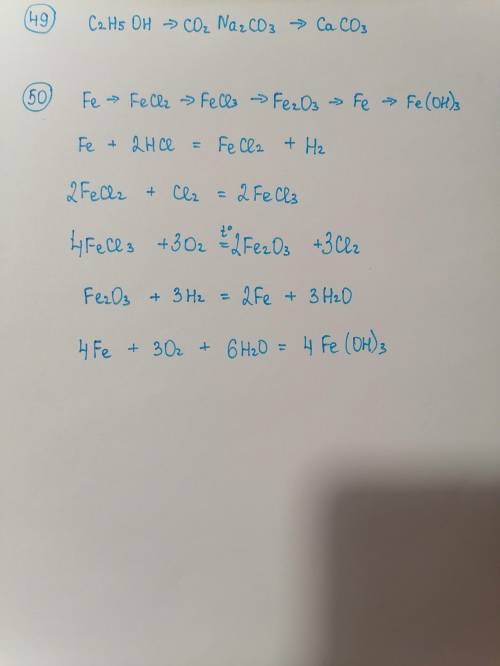 49 C2H5 OH → CO2 Na2CO3 → CaCO3
50 Fe → FeCl2 → FeCl3 → Fe2O3 → Fe → Fe(OH)3
Fe + 2HCl = FeCl2 + H2
2FeCl2 + Cl2 = 2FeCl3
4FeCl3 + 3O2 t°= 2Fe2O3 + 3Cl2
Fe2O3 + 3H2 = 2Fe + 3H2O
4Fe + 3O2 + 6H2O = 4Fe(OH)3